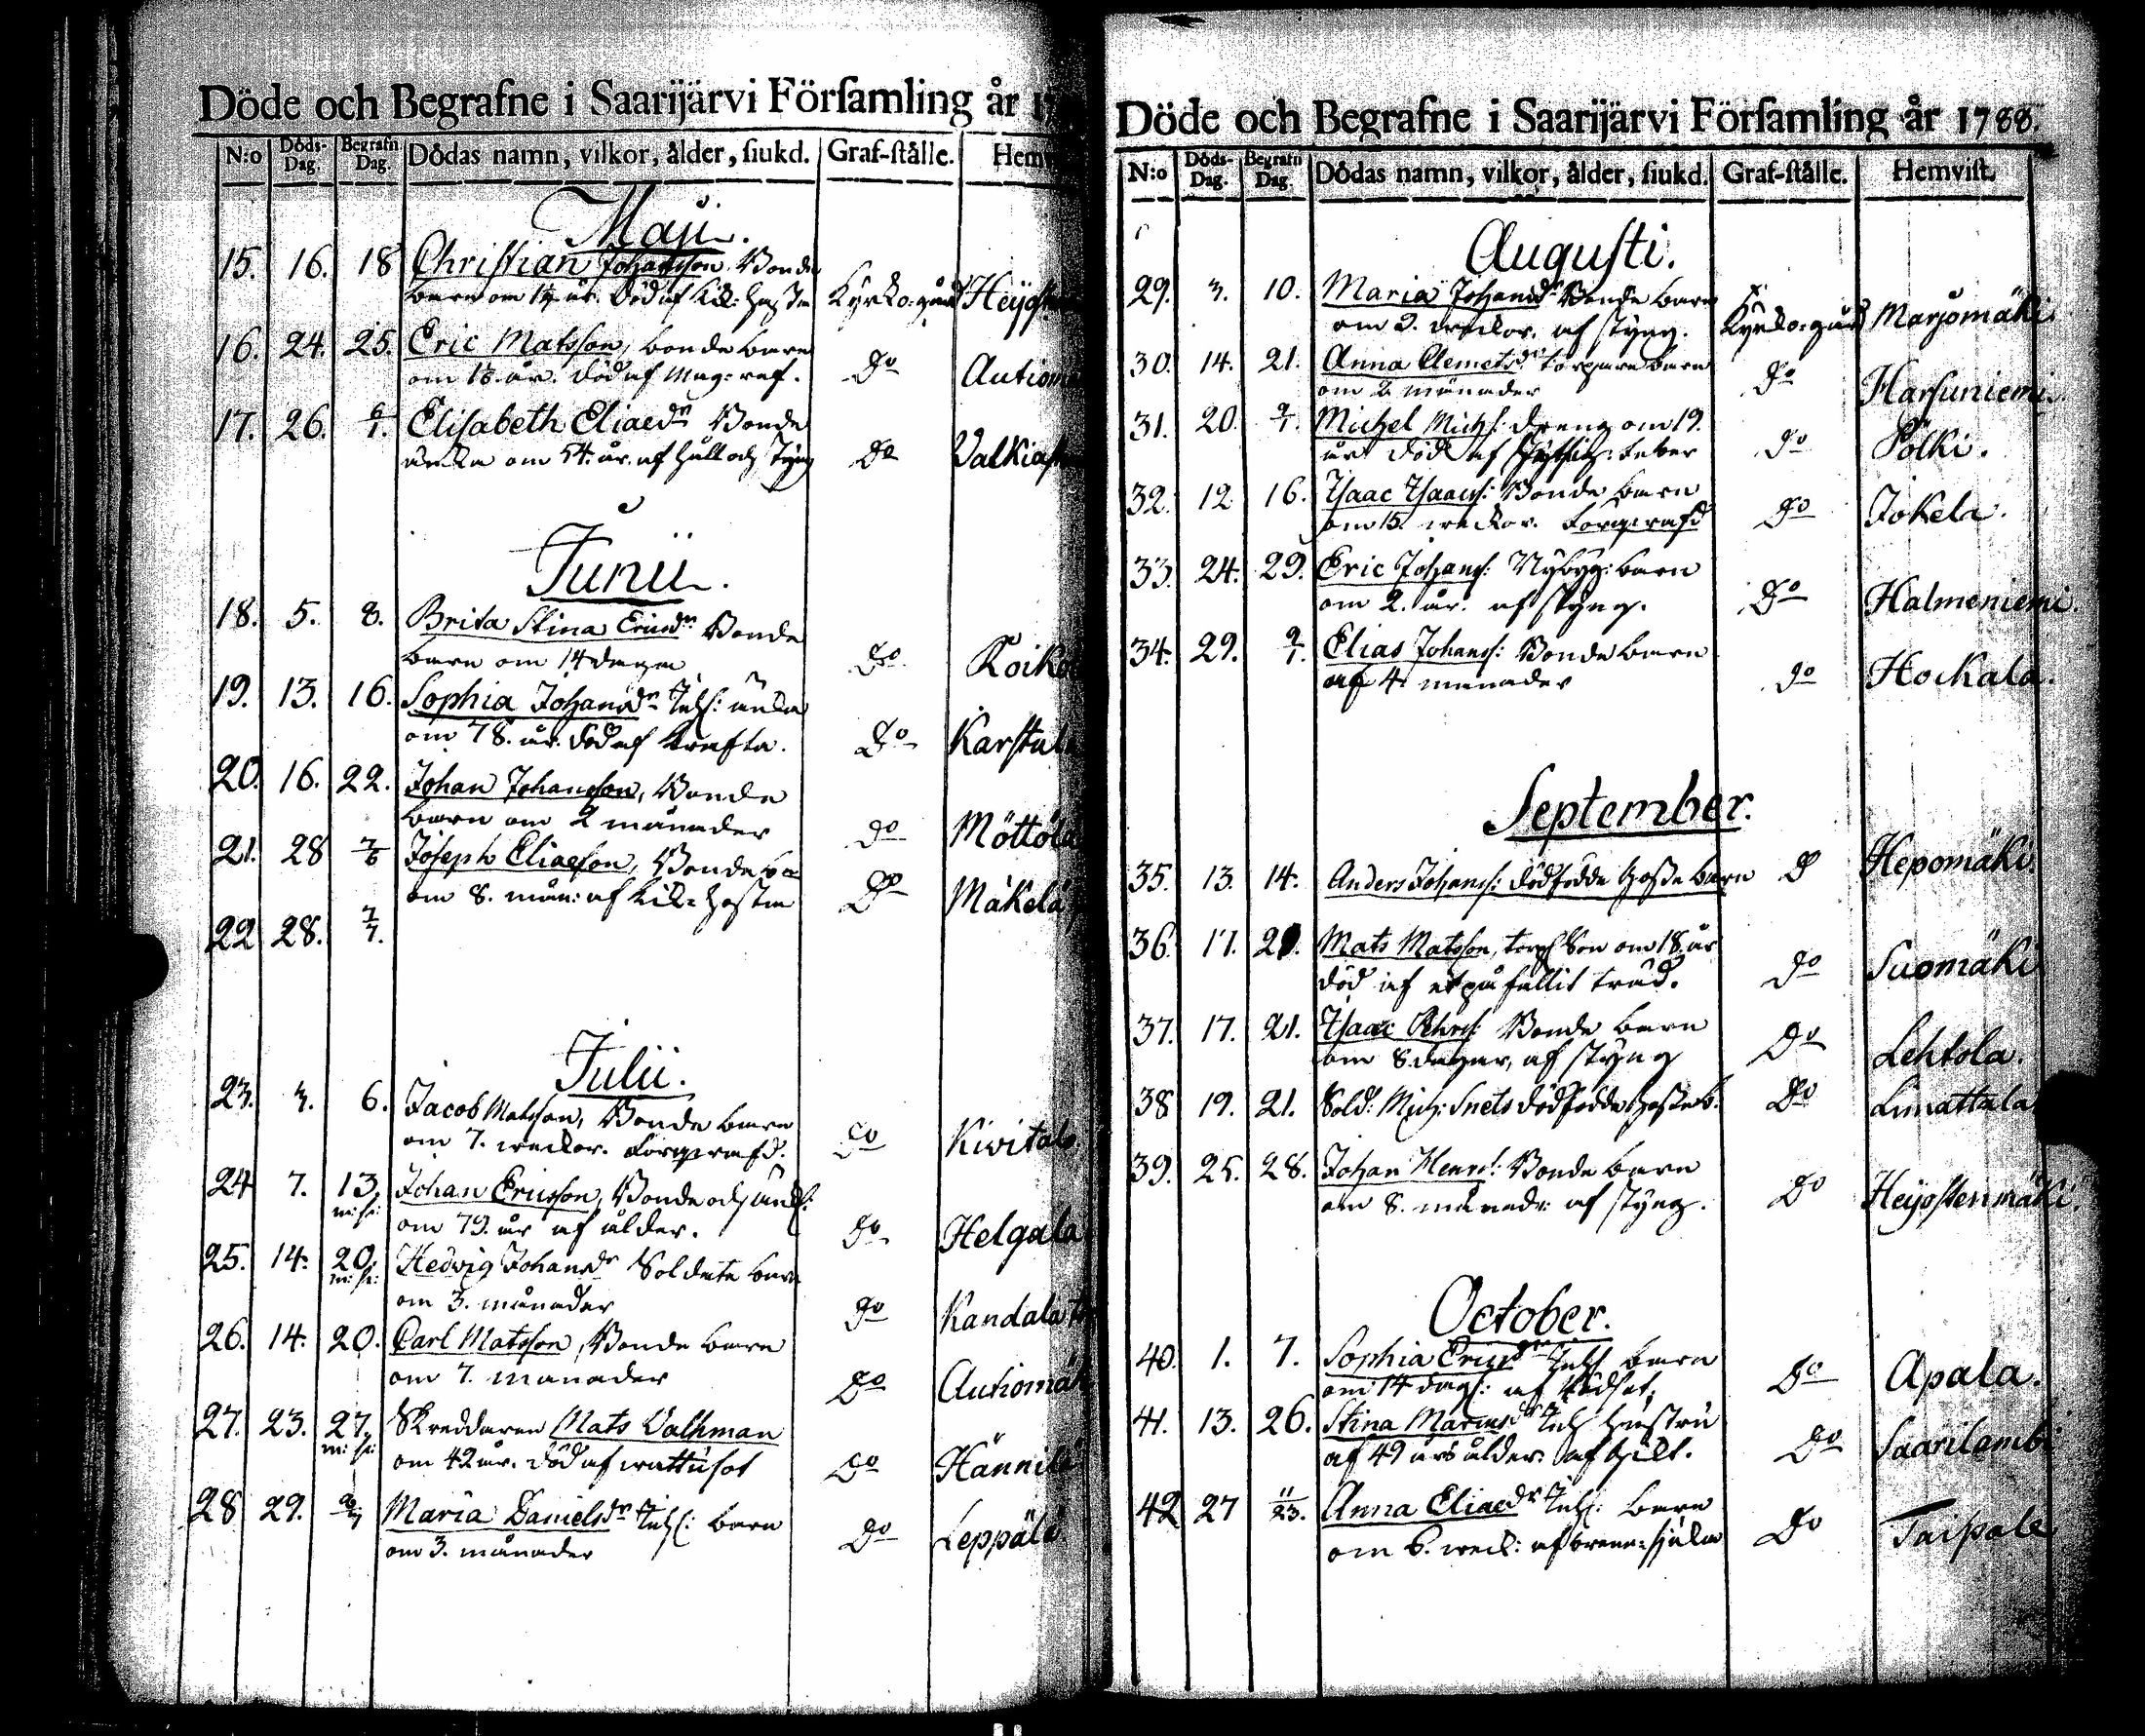 Döde och Begrafne i Saarijärvi Förſamling år 17
N:o Döds-Dag. Begrafn Dag. Dödas namn, vilkor, ålder, ſiukd. Graf-ſtälle. Hemv
Maji.
15. 16. 18 Christian Johansson Bonde
barn om 1½ år. död af Kik: hosta Kyrko-gård Heijost
16. 24. 25. Eric Matsson, bonde barn
om år. död af Mag: ref. Do Autiom
17. 26. 6/1. Elisabeth Eliaedr Bonde
änka om 54. år. af håll och styng Do Valkia
Junii.
18. 5. 8. Brita Stina Ericsdr Bonde
barn om 14 dagar Do Koik
19. 13. 16. Sophia Johansdr Inhs: änka
om 78. år. död af Kräfta. Do Karstul
20. 16. 22. Johan Johansson, Bonde
barn om 2 månader Do Möttöl
21. 28 7/6 Joseph Eliaeson, Bonde ba
om 8. mån: af Kik-hosta Do Mäkelä
22 28. 7/7.
Julii.
23. 3. 6. Jacob Matsson, Bonde barn
om 7. weckor. Förqwafd. Do Kivitalo
24 7. 13. Johan Ericsson, Bonde och
om 79. år af ålder. Do Helgala
25. 14. 20. Hedvig Johansdr Soldate barn
om 3. månader Do Kandala
26. 14. 20. Carl Matsson, Bonde barn
om 7. månader Do Autiomäk
27. 23. 27. Skreddaren Mats Valhman
om 42 år. död af wattusot Do Hännilä
28 29. Maria Danielsdr Inhs: barn
om 3. månader Do Leppälä
Döde och Begrafne i Saarijärvi Förſamling år 1788.
N:o Döds-Dag. Begrafn Dag. Dödas namn, vilkor, ålder, ſiukd. Graf-ſtälle. Hemviſt.
Augusti.
29. 3. 10. Maria Johansdr Bonde barn
om 3. weckor. af styng. Kyrko-gård Marjomäki
30. 14. 21. Anna Clemetsdr torpare barn
om 2 månader Do Harsuniemi
31. 20. 9/1. Michel Michs: dräng om 19.
år död af feber do Pölki.
32. 12 16. Isaac Isaacs: Bonde barn
om 15. weckor. Förqwafd do Jokela.
33. 24. 29. Eric Johans: Nybyg: barn
om 2. år. af styng. Do Halmeniemi.
34. 29. 9/1. Elias Johans: Bonde barn
af 4 månader do Hockala.
September.
35. 13. 14. Anders Johans: dödfödde gosse barn D Hepomäki
36. 17. 21. Mats Matsson, torps Son om 18. år
död af et påfallit träd. do Suomäki
37. 17. 21. Isaac Pehrs: Bonde barn
om 8. dagar, af styng Do Lehtola.
38 19. 21. Sold: Mich: Snets dödfödde gosse b: Do Limattala
39. 25. 28. Johan Henrs: Bonde barn
om 8. månadr. af styng. Do Heijostenmäki.
October.
40. 1. 7. Sophia Ericsdr Inhs barn
om 14 dag: af Rödsot. Do Apala.
41. 13. 26. Stina Inhs hustru
af 49 års ålder. af Do Saarilambi
42 27 11/23. Anna Eliaedr Inhs: barn
om 6. weck: af Do Taipale